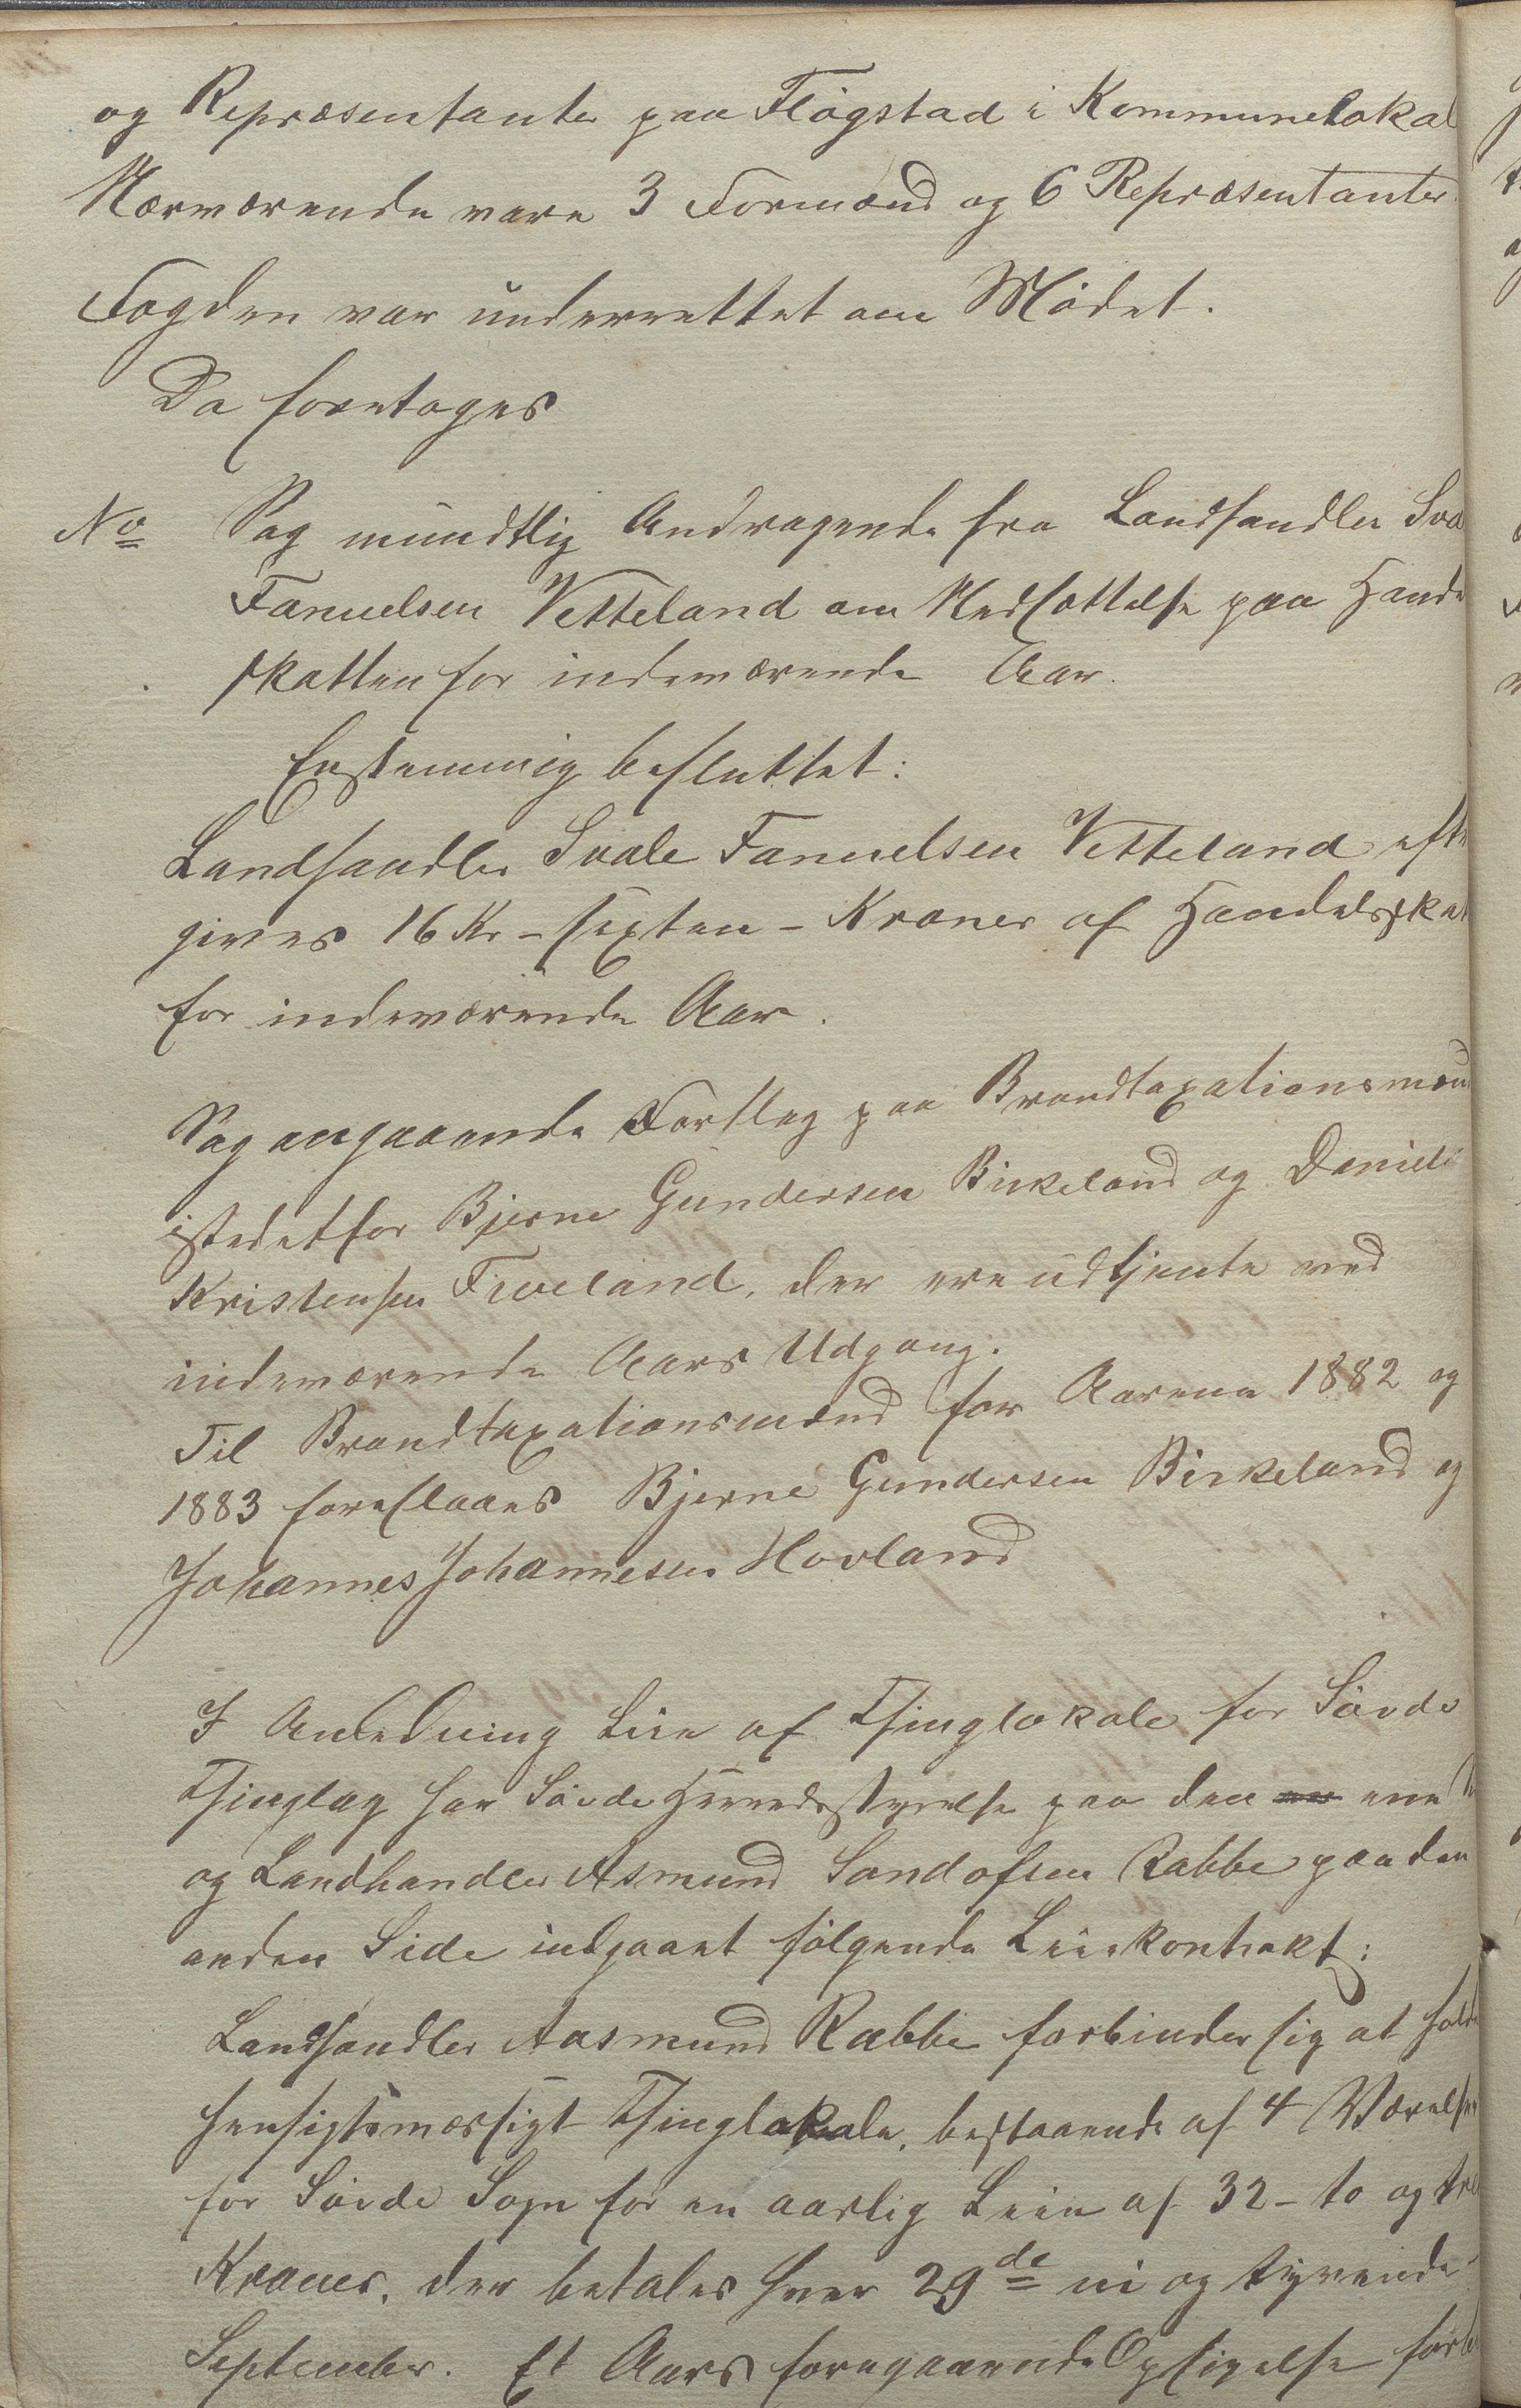 og Repræsentanter paa Fløgstad i Kommunelokal
Nærværende vare 3 Formænd og 6 Repræsentanter.
Fogden var underrettet om Mødet.
Da foretoges
No Sag mundtlig Andragende fra Landhandler Sva
Fanuelsen Vetteland om Nedsættelse paa Hande
skatten for indeværende Aar.
Enstemmig besluttet:
Landhandler Svale Fanuelsen Vetteland efter
gives 16 Kr - sexten - Kroner af Handelsskat
for indeværende Aar.
Sag angaaende Forslag paa Brandtaxationsmænd
istedetfor Bjerne Gundersen Birkeland og Daniel
Kristensen Tveeland, der ere udtjente med
indeværende Aars Udgang.
Til Brandtaxationsmænd for Aarene 1882 og
1883 foreslaaes Bjerne Gundersen Birkeland og
Johannes Johannesen Hovland
I Anledning Leie af Thinglokale for Søvde
Thinglag har Søvde Herredsstyrelse paa den ene
og Landhandler Asmund Sandofsen Rabbe paa den
anden Side indgaaet følgende Leiekontrakt:
Landhandler Aasmund Rabbe forbinder sig at holde
hensigtsmæssigt Thinglokale, bestaaende af 4 Værelser
for Søvde Sogn for en aarlig Leie af 32 - to og tre
Kroner, der betales hver 29de ni og tyvende
September. Et Aars foregaaende Opsigelse for